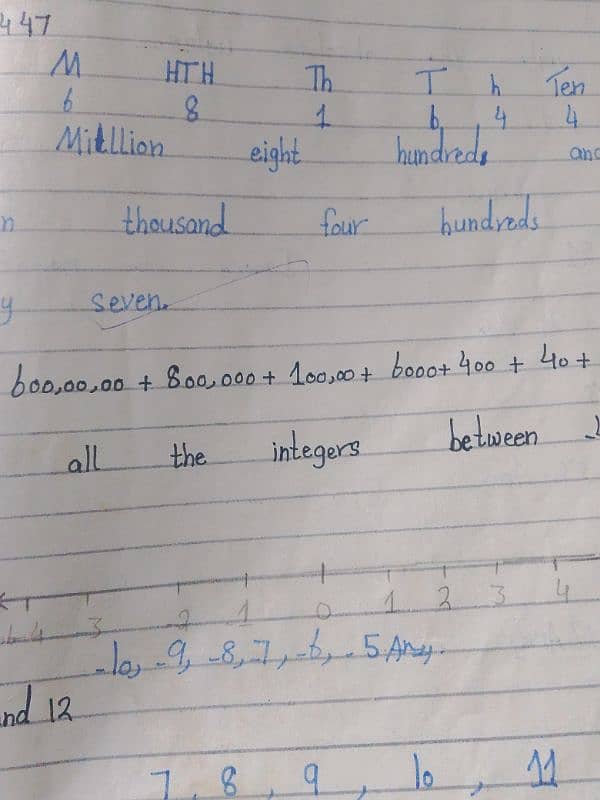 447
M HTH Th T h Ten
6 8 1 6, 4 4
Million eight hundreds and
n thousand four hundreds
y seven.
600,00,00 + 800,000 + 100,00 + 6000 + 400 + 40 +
all the integers between
4 3 -2 1 0 1 2 3 4
-10, -9, -8, 7, -6, -5 Ans.
and 12
7, 8, 9, 10, 11